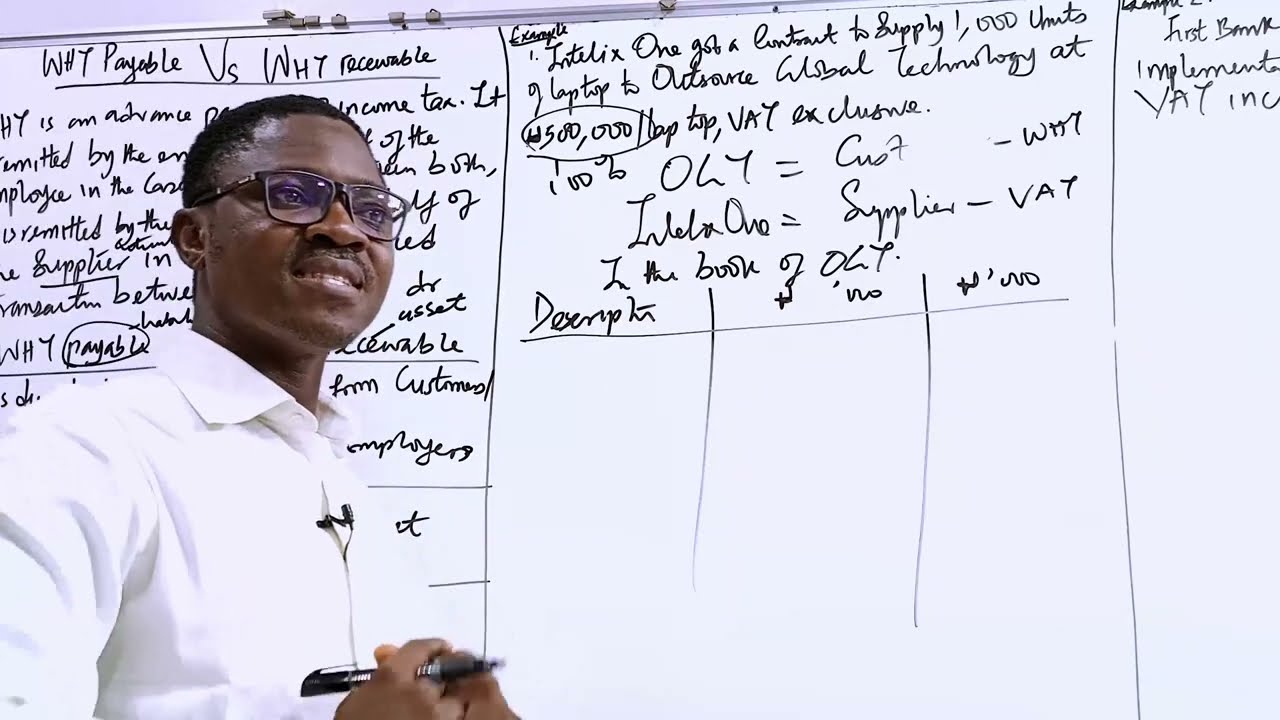 WHT Payable Vs WHT receivable
HT is an advance income tax. It
remitted by the em of the
mployee in the Cas both,
is remitted by the of
the Supplier in
transaction between dr
asset
WHT payable receivable
from Customers/
employers
it
Example
1. Intelix One got a Contract to Supply 1,000 Units
of laptop to Outsource Global Technology at
₦500,000/laptop, VAT exclusive.
100%
OGT = Cust - WHT
Intelix One = Supplier - VAT
In the book of OGT.
Descriptn ₦'000 ₦'000
Example 2:
First Bank
implementa
VAT inc